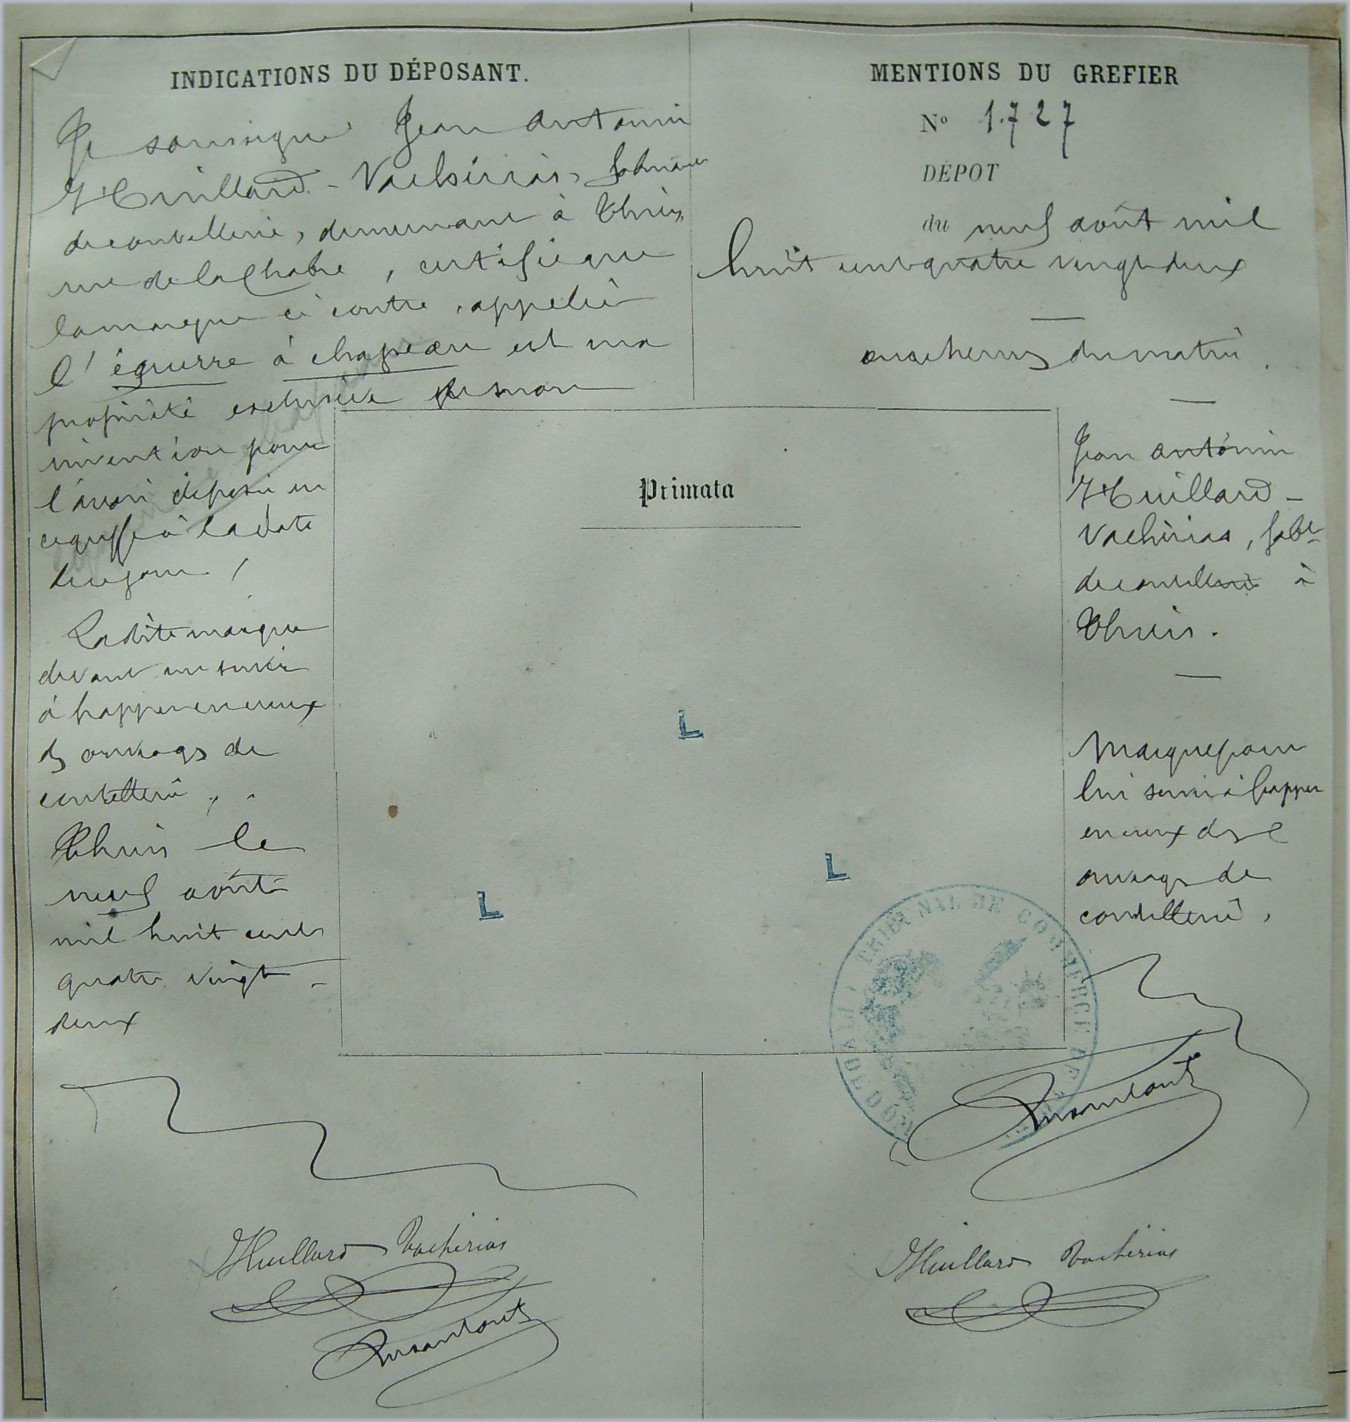 INDICATIONS DU DÉPOSANT.
Je soussigné Jean Antonin
Huillard-Vachérias, fabricant
de coutellerie, demeurant à Thiers,
rue de la Chabre, certifie que
la marque ci contre, appelée
l'équerre à chapeau est ma
propriété exclusive de mon
invention pour
l'avoir déposée en
ce greffe à la date
de ce jour,
Ladite marque
devant me servir
à frapper en creux
des ouvrages de
coutellerie,
Thiers le
neuf août
mil huit cent
quatre vingt-
deux
Huillard Vachérias
MENTIONS DU GREFIER
No 1.727
DÉPOT
du neuf août mil
huit cent quatre vingt deux
onze heures du matin.
Primata
L
L
L
Jean Antonin
Huillard-
Vachérias, fabt
de coutellerie à
Thiers.
Marque pour
lui servir à frapper
en creux des
ouvrages de
coutellerie,
TRIBUNAL DE COMMERCE DE
PUY DE DOME
Huillard Vachérias